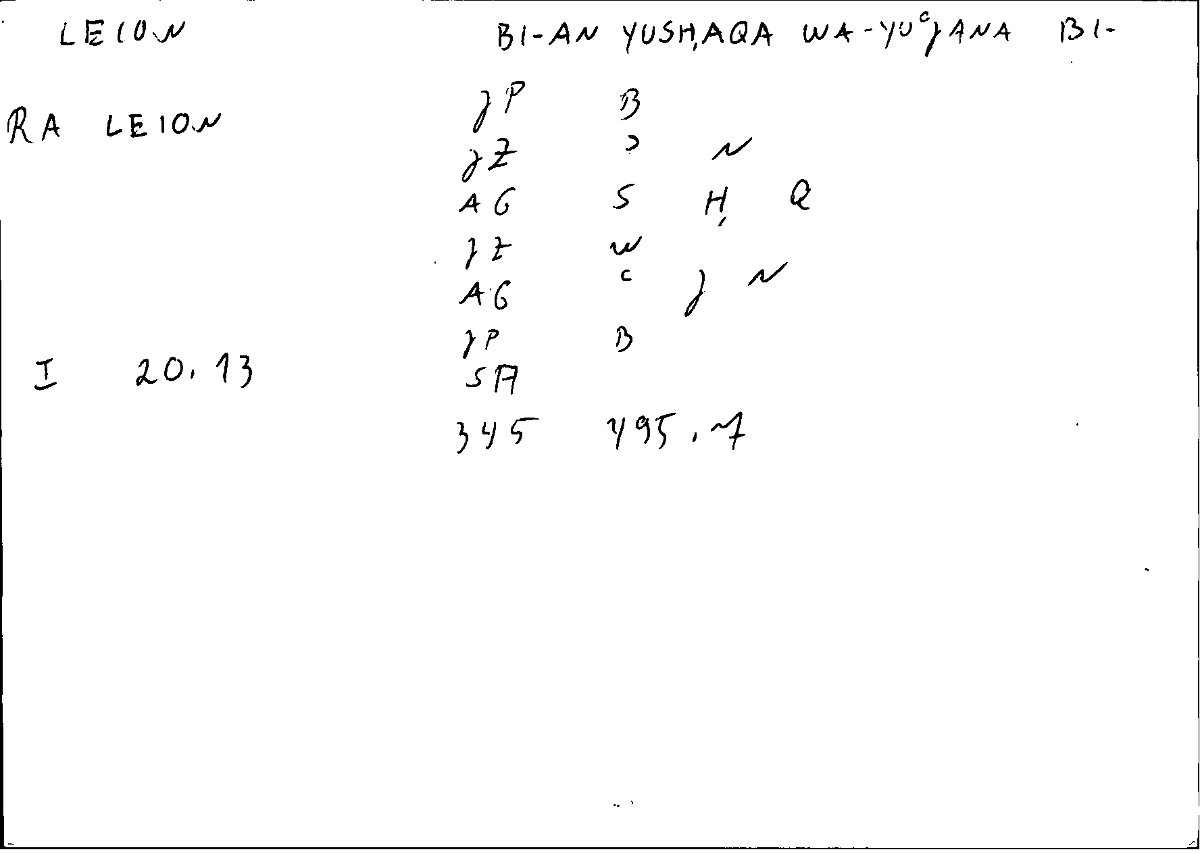 LEION BI-AN YUSḤAQA WA-YUʿJANA BI-
JP B
RA LEION
JZ ʾ N
AG S Ḥ Q
JZ W
AG ʿ J N
JP B
I 20.13
SA
345 495.7